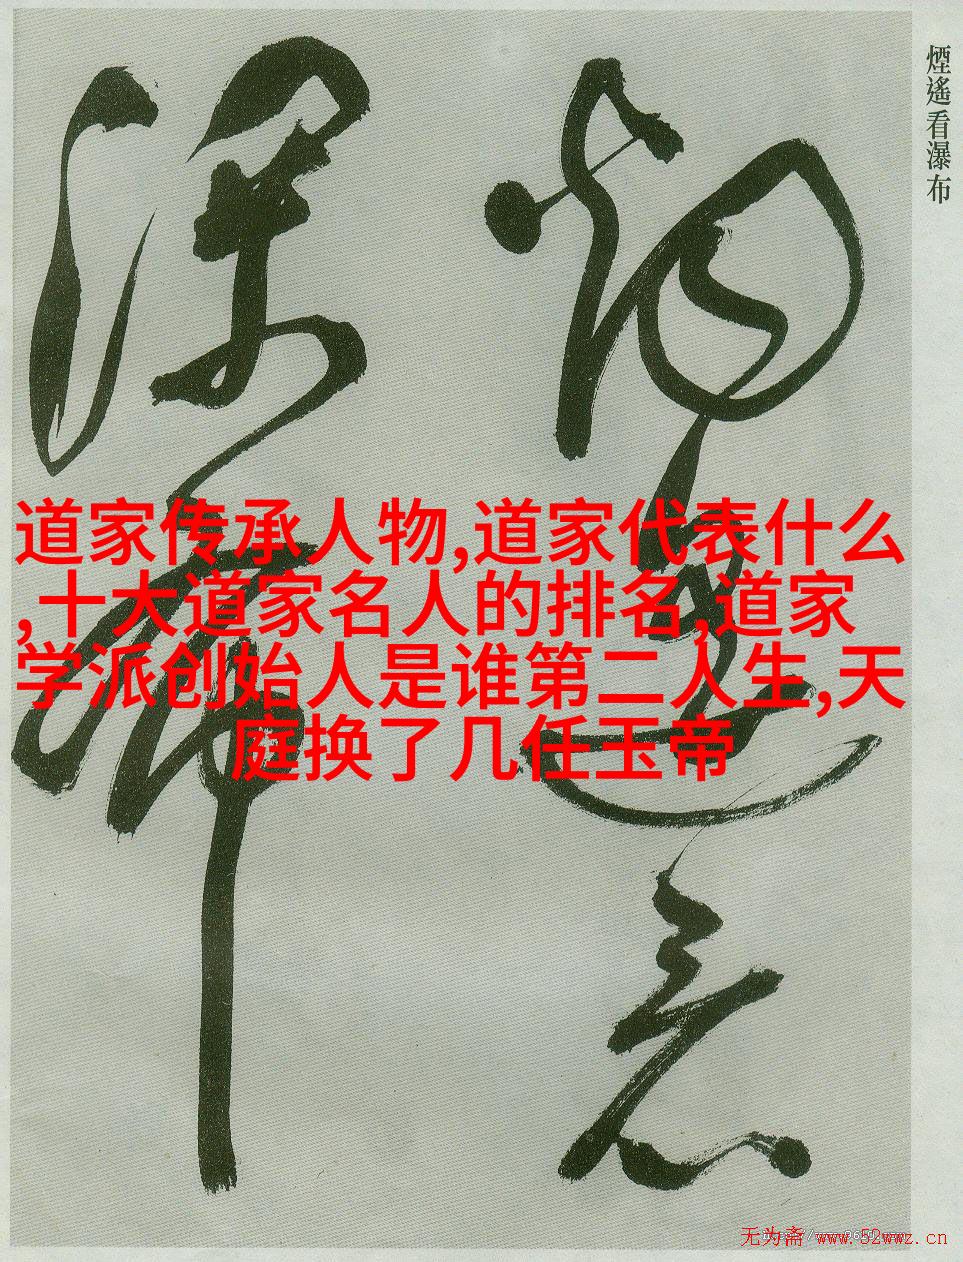 煙遙看瀑布
煙遙看
瀑布
道家传承人物,道家代表什么
,十大道家名人的排名,道家
学派创始人是谁第二人生,天
庭换了几任玉帝
无为斋 www.52wwz.cn